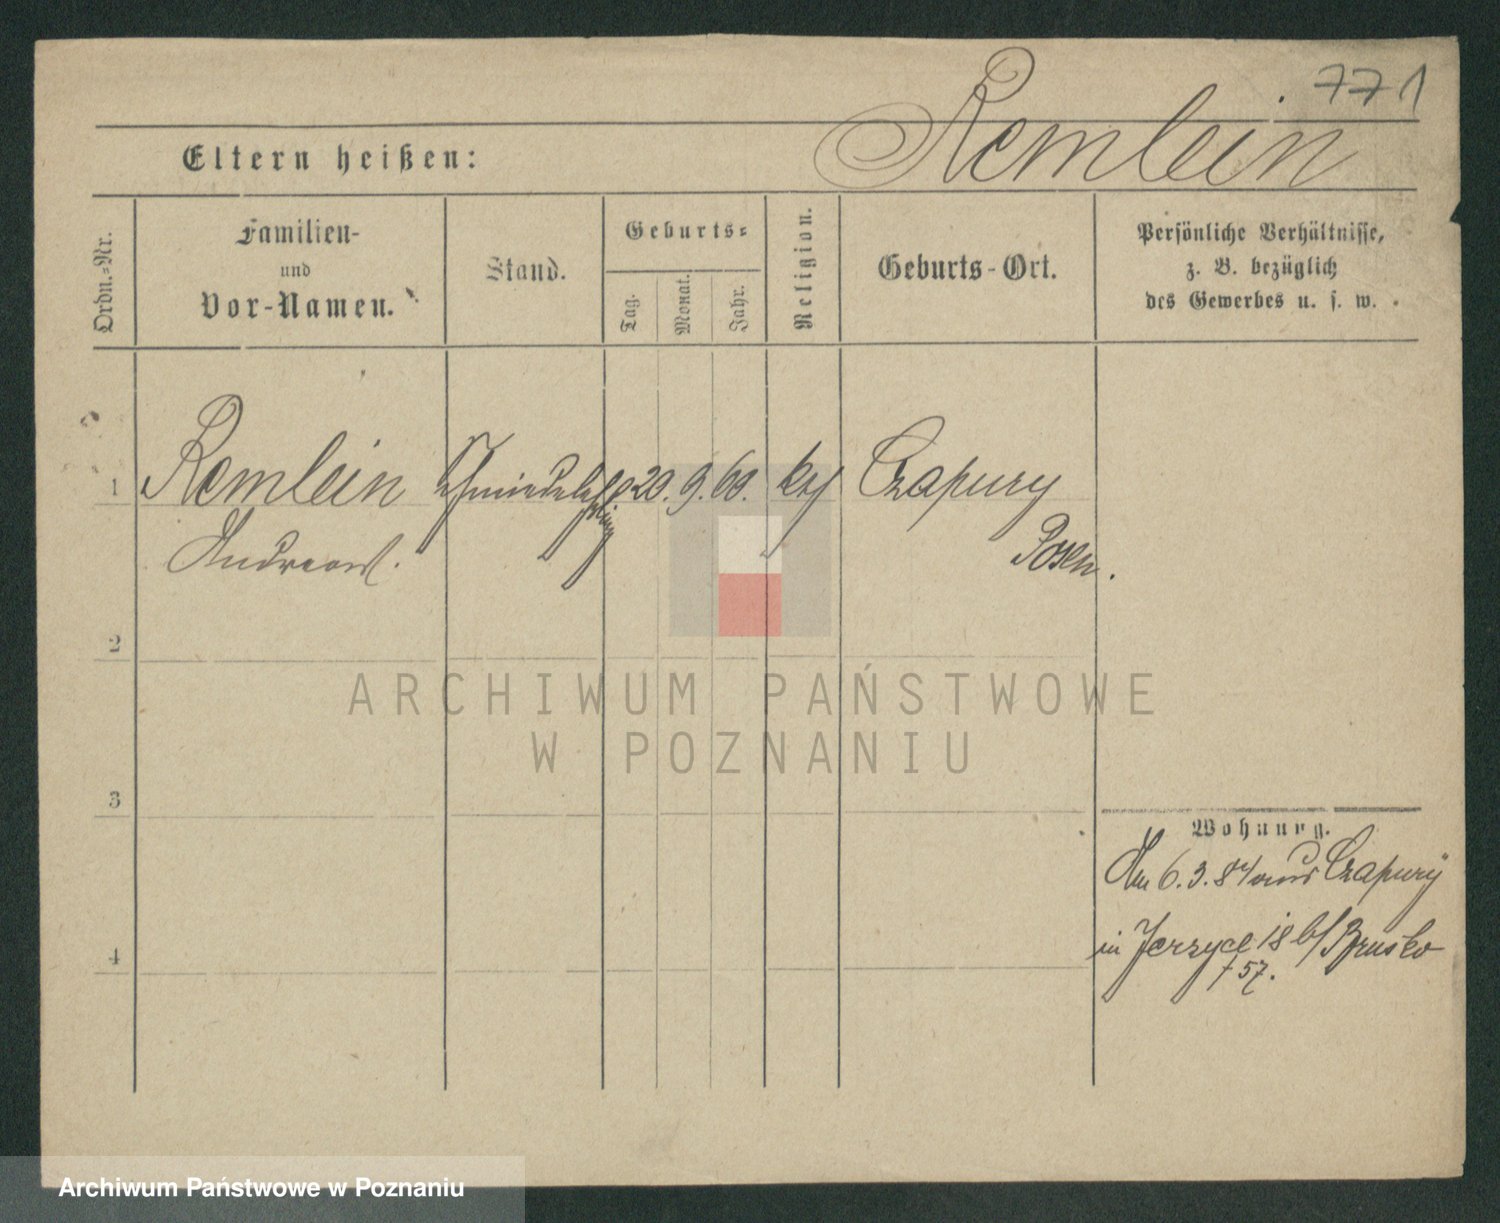 771
Remlein
Eltern heißen:
Ordn.-Nr.
Familien-
und
Vor-Namen.
Stand.
Geburts-
Tag.
Monat.
Jahr.
Religion.
Geburts-Ort.
Persönliche Verhältnisse,
z. B. bezüglich
des Gewerbes u. s. w.
1
Remlein
Andreas.
Schmiedelehrling
20. 9. 60.
Czapury
Posen.
2
3
4
Wohnung.
Am 6.3.84 aus Czapury
in Jerzyce 18 b/ Brusko
+ 57.
ARCHIWUM PAŃSTWOWE
W POZNANIU
Archiwum Państwowe w Poznaniu